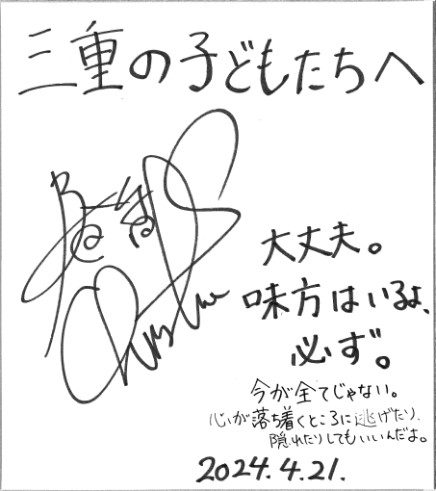 三重の子どもたちへ
大丈夫。
味方はいるよ、
必ず。
今が全てじゃない。
心が落ち着くところに逃げたり、
隠れたりしてもいいんだよ。
2024.4.21.